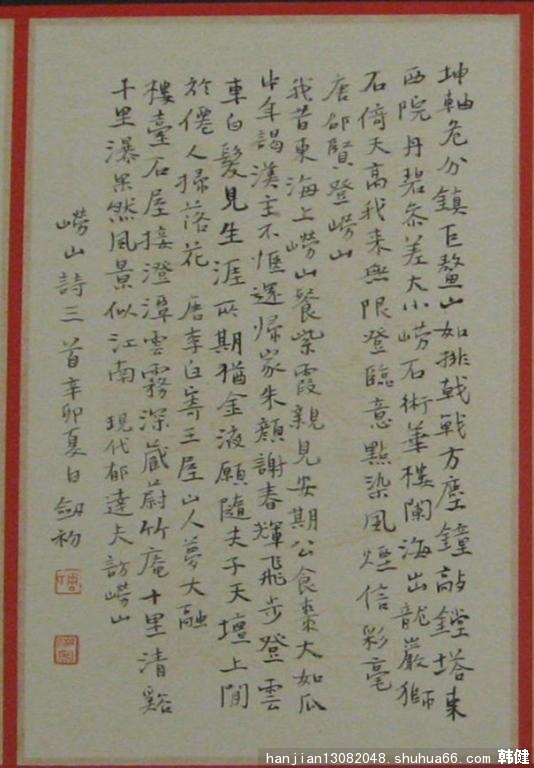 坤軸危分鎮巨鰲山如排戟戰方塵鐘敲鏜塔東
西院丹碧參差大小嶗石術華樓闌海出龍巖獅
石倚天高我來無限登臨意點染風煙信彩毫
唐邰賢登嶗山
我昔東海上嶗山餐紫霞親見安期公食棗大如瓜
中年謁漢主不愜還歸家朱顏謝春輝飛步登雲
車白髮見生涯所期猶金液願隨夫子天壇上閒
於僊人掃落花 唐李白寄王屋山人夢大融
樓臺石屋接澄潭雲霧深藏蔚竹庵十里清谿
千里瀑果然風景似江南 現代郁達夫訪嶗山
嶗山詩三首辛卯夏日劍初
hanjian13082048.shuhua66.com 韩健